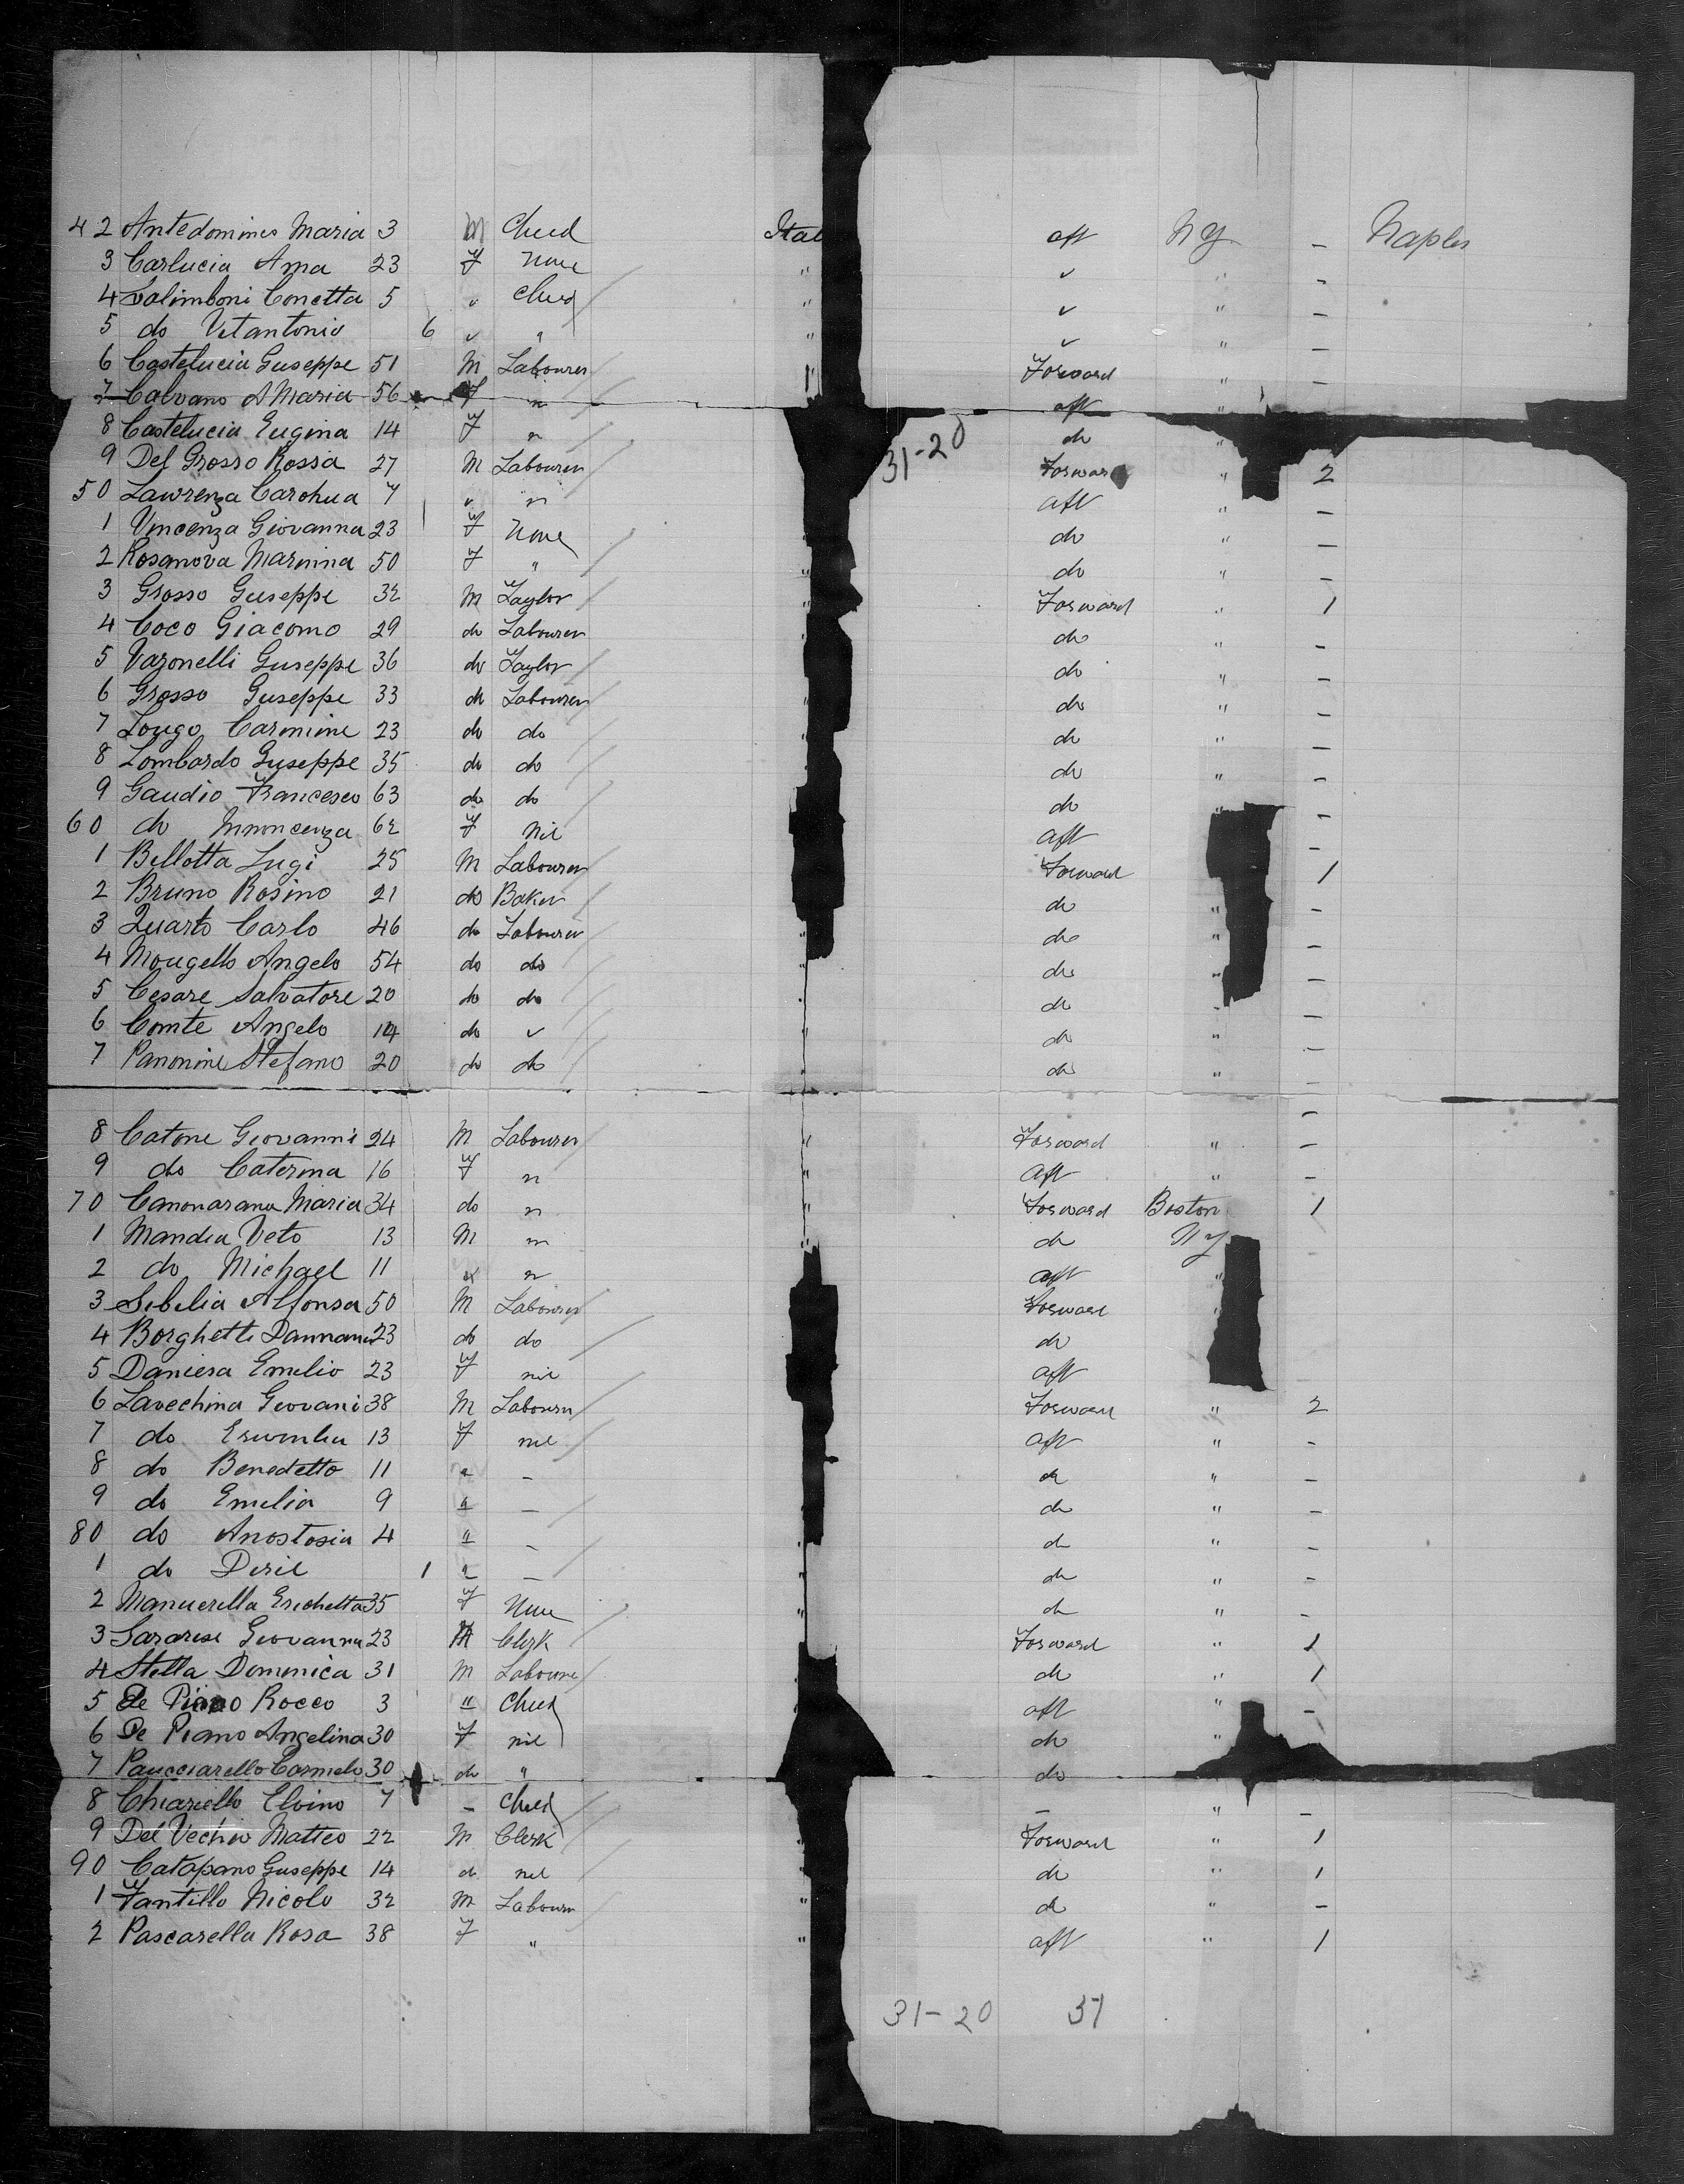 42 Antedomines Maria 3 M Child Ital aft NY – Naples
3 Carlucia Anna 23 F None " ✓ " –
4 Salimboni Concetta 5 " Child " ✓ " –
5 do Vitantonio 6 " " " ✓ " –
6 Castelucia Guseppe 51 M Labourer " Forward " –
7 Calvano A Maria 56 F " aft "
8 Castelucia Eugina 14 F " do "
31-20
9 Del Grosso Rossia 27 M Labourer Forward " 2
50 Lawrenza Carohua 7 " " aft " –
1 Vincenza Giovanna 23 F None do " –
2 Rosanova Marnina 50 F " " do " –
3 Grosso Guseppe 32 M Taylor " Forward " 1
4 Coco Giacomo 29 do Labourer " do " –
5 Varonelli Guseppe 36 do Taylor do " –
6 Grosso Guseppe 33 do Labourer " do " –
7 Longo Carmine 23 do do " do " –
8 Lombardo Guseppe 35 do do do " –
9 Gaudio Francesco 63 do do do " –
60 do Innoncenza 62 F Nil aft –
1 Bellotta Lugi 25 M Labourer Forward 1
2 Bruno Rosino 21 do Baker do " –
3 Quarto Carlo 46 do Labourer " do " –
4 Mougello Angelo 54 do do " do " –
5 Cesare Salvatore 20 do do " do " –
6 Comte Angelo 14 do ✓ " do " –
7 Panonine Stefano 20 do do " do " –
–
8 Catone Giovanni 24 M Labourer " Forward " –
9 do Caterina 16 F " " aft " –
70 Canonarana Maria 34 do " " Forward Boston 1
1 Mandia Veto 13 M " " do NY
2 do Michael 11 " " aft "
3 Sibilia Alfonsa 50 M Labourer Forward
4 Borghetti 23 do do do
5 Daniesa Emilio 23 F nil aft
6 Lavechina Giovani 38 M Labourer Forward " 2
7 do 13 F nil aft " –
8 do Benedetto 11 " – do " –
9 do Emilia 9 " – do " –
80 do Anostosia 4 " – do " –
1 do 1 " – " do " –
2 Manucrella Erichetta 35 F None " do " –
3 Sararese Giovanna 23 M Clerk Forward " 1
4 Stella Domenica 31 M Labourer do " 1
5 De Piano Rocco 3 " Child aft " –
6 De Piano Angelina 30 F nil do "
7 Paucciarello Carmelo 30 do " do
8 Chiariello Elvino 7 – Child – " –
9 Del Vechio Matteo 22 M Clerk " Forward " 1
90 Catapano Guseppe 14 do nil do " 1
1 Fantillo Nicolo 32 M Labourer " do " –
2 Pascarella Rosa 38 F " " aft " 1
31-20 37